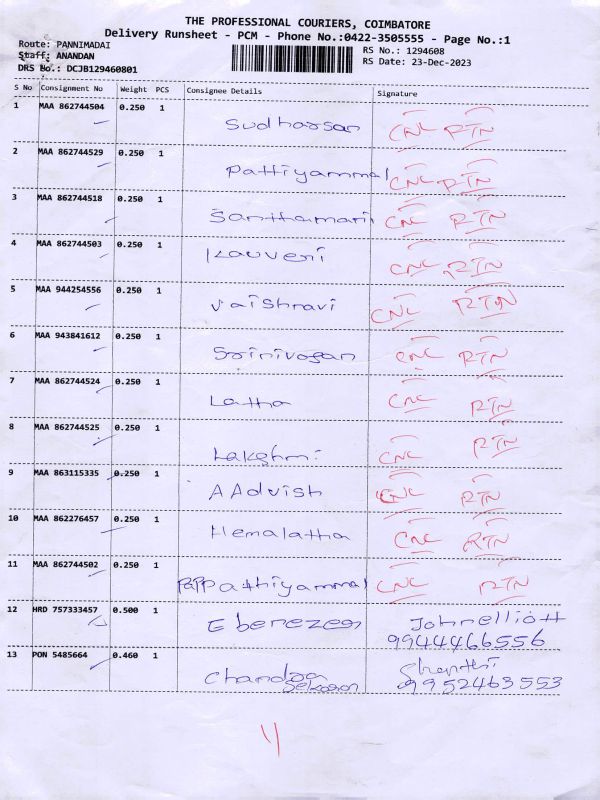 THE PROFESSIONAL COURIERS, COIMBATORE
Delivery Runsheet - PCM - Phone No.:0422-3505555 - Page No.:1
Route: PANNIMADAI RS No.: 1294608
Staff: ANANDAN RS Date: 23-Dec-2023
DRS No.: DCJB129460801
S No Consignment No Weight PCS Consignee Details Signature
1 MAA 862744504 0.250 1 Sudharsan CNL RTN
2 MAA 862744529 0.250 1 Pattiyammal CNL RTN
3 MAA 862744518 0.250 1 Santhamari CNL RTN
4 MAA 862744503 0.250 1 Kauveri CNL RTN
5 MAA 944254556 0.250 1 Vaishravi CNL RTN
6 MAA 943841612 0.250 1 Srinivasan CNL RTN
7 MAA 862744524 0.250 1 Latha CNL RTN
8 MAA 862744525 0.250 1 Lakshmi CNL RTN
9 MAA 863115335 0.250 1 AAdvish CNL RTN
10 MAA 862276457 0.250 1 Hemalatha CNL RTN
11 MAA 862744502 0.250 1 Pappathiyammal CNL RTN
12 HRD 757333457 0.500 1 Ebenezen Johnelliott
9944466556
13 PON 5485664 0.460 1 Chandra Shanthi
Sekaran 9952463553
11